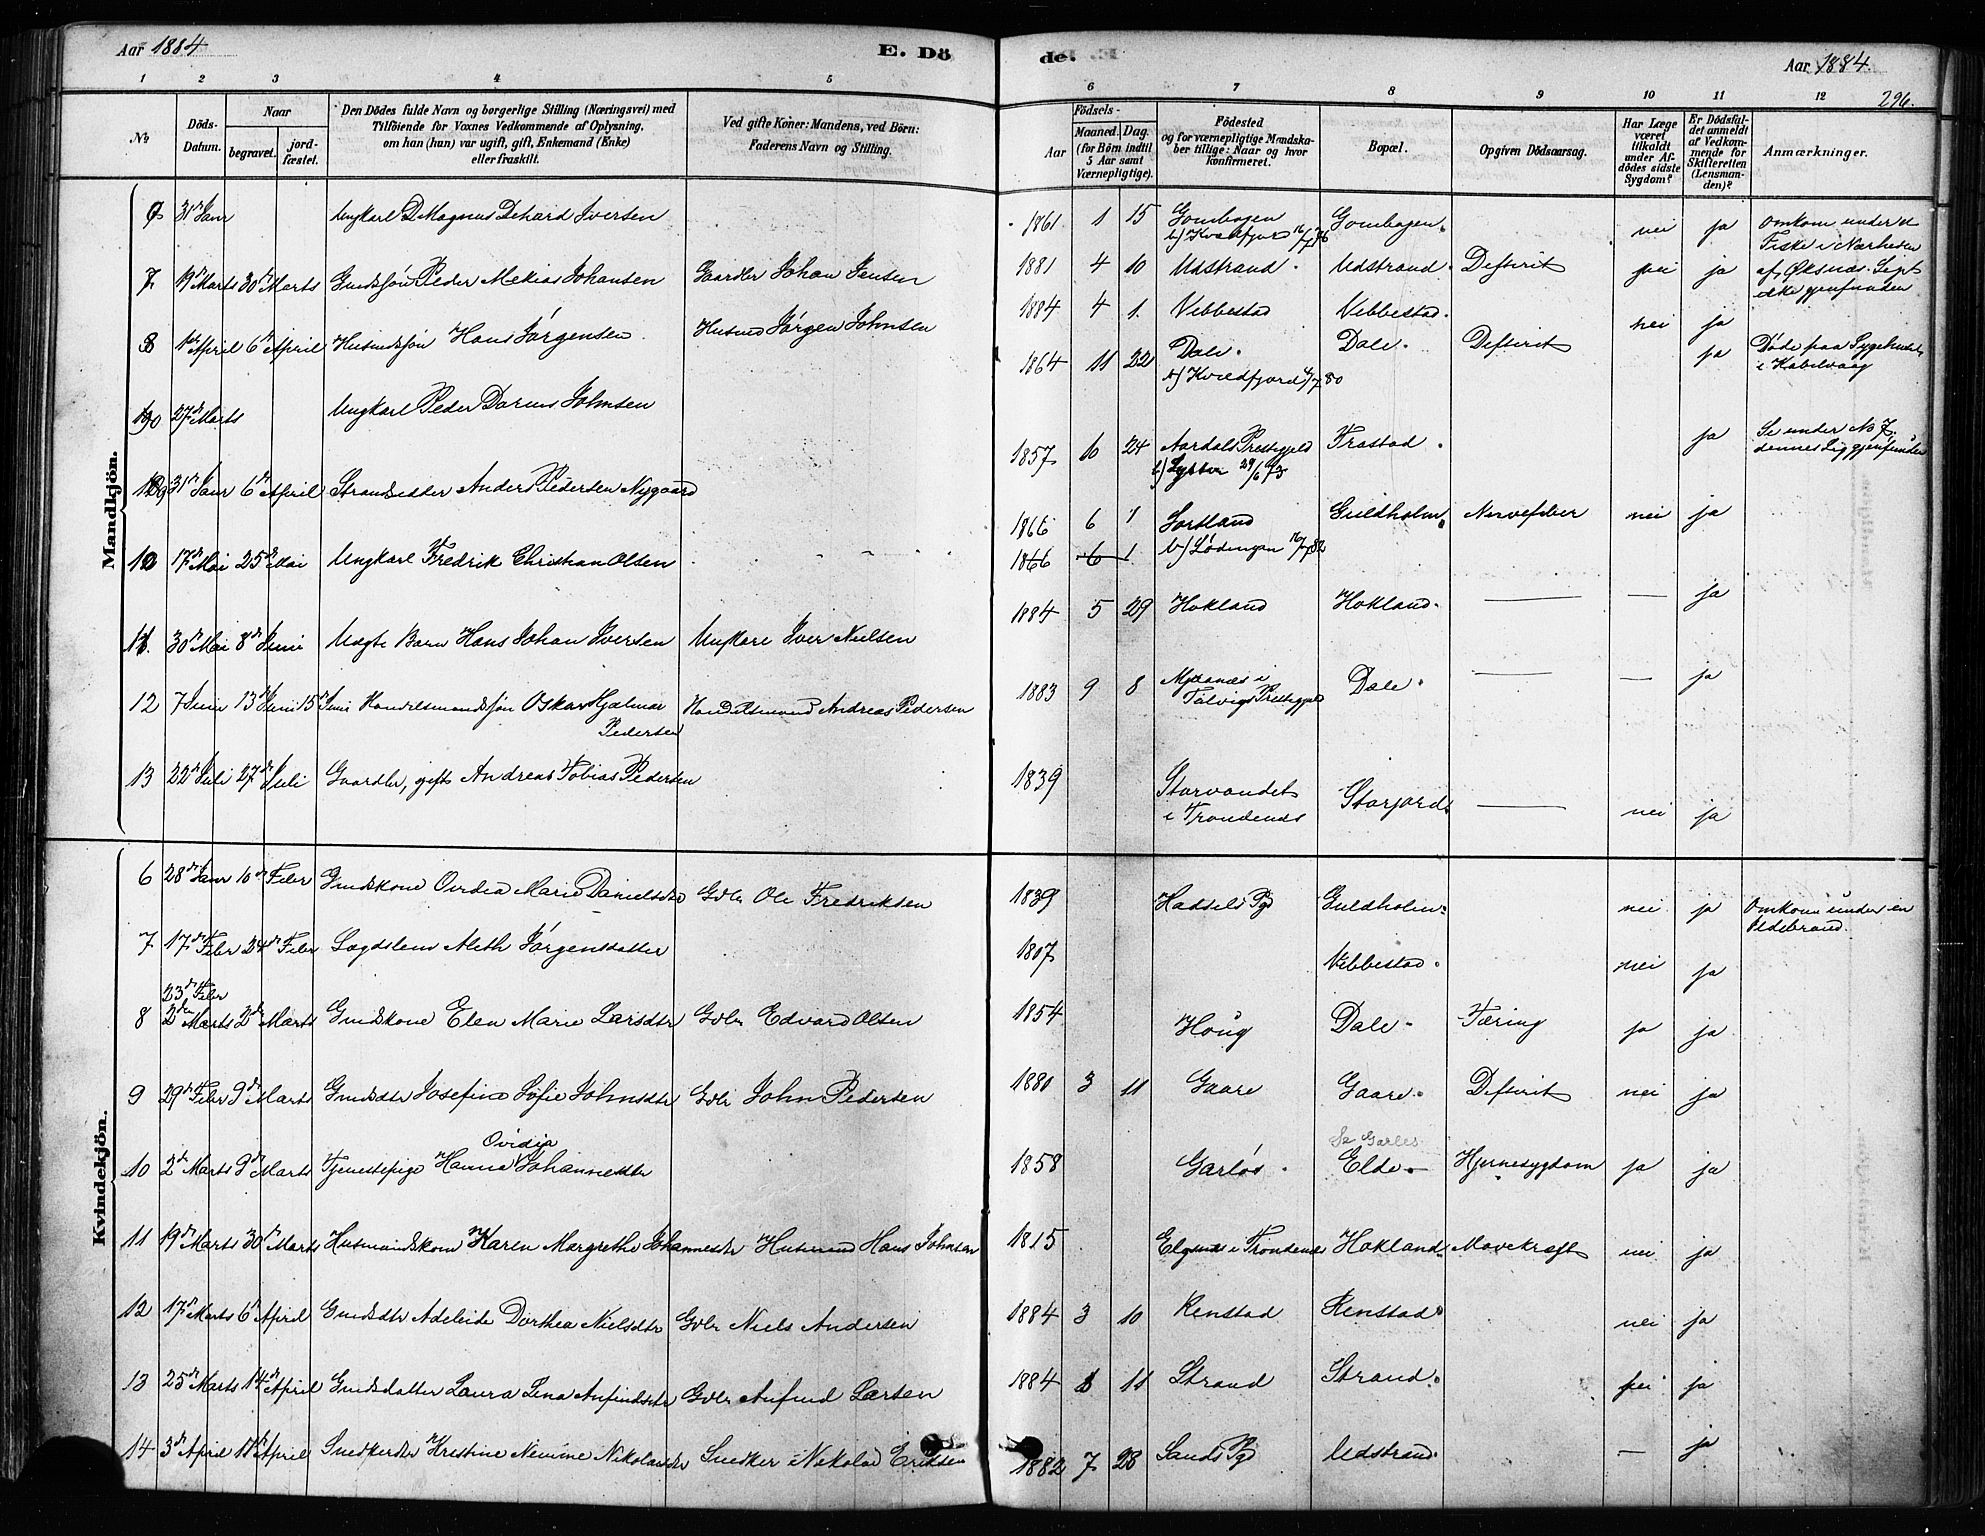 Aar 1884
E. Dö
de.
Aar 1884.
296.
1 2 3 4 5 6 7 8 9 10 11 12
No
Döds-Datum.
Naar
begravet.
jord-fæstet.
Den Dödes fulde Navn og borgerlige Stilling (Næringsvei) med
Tilföiende for Voxnes Vedkommende af Oplysning,
om han (hun) var ugift, gift, Enkemand (Enke)
eller fraskilt.
Ved gifte Koner: Mandens, ved Börn:
Faderens Navn og Stilling.
Födsels-
Aar
Maaned. Dag.
(for Börn indtil
5 Aar samt
Værnepligtige).
Födested
og for værnepligtige Mandska-
ber tillige: Naar og hvor
konfirmeret.
Bopæl.
Opgiven Dödsaarsag.
Har Læge
været
tilkaldt
under Af-
dödes sidste
Sygdom?
Er Dödsfal-
det anmeldt
af Vedkom-
mende for
Skifteretten
(Lensman-
den)?
Anmærkninger.
Mandkjön.
6 31te Janr Ungkarl Magnus Dehard Iversen 1861 1 15 Gombogen Gombogen. nei ja Omkom under
b) Kvædfjord 16/7 76 Fiske i Nærheden
7 19de Marts 30te Marts Gmdssøn Peder Mekias Johansen Gaardbr Johan Jensen 1881 4 10 Udstrand. Udstrand. Defterit nei ja af Øksnæs. Liget
ikke gjenfunden
8 1ste April 6te April Husmdssøn Hans Jørgensen Husmd Jørgen Johnsen 1884 4 1. Vebbestad Vebbestad. nei ja
27de Marts Ungkarl Peder Darius Johnsen 1864 11 22 Dale. Dale. Defterit ja Døde paa Sygehuset
b) Kvædfjord 4/7 80 i Kabelvaag
31te Janr 6te April Strandsidder Anders Pedersen Nygaard 1857 10 24 Aardals Prestegjeld Trastad. ja Se under No 7.
b) Lyster 29/6 73 dennes Lig gjenfunden
10 17de Mai 25de Mai Ungkarl Fredrik Christian Olsen 1866 6 1 Sortland Guldholm. Nervefeber nei ja
1866 6 1 b) Lødingen 16/7 82
11. 30te Mai 8de Juni Uægte Barn Hans Johan Iversen Ungkarl Iver Nielsen 1884 5 29 Hokland Hokland. — — ja
12 7 Juni 13de Juni 15de Juni Handelsmandssøn Oskar Hjalmar Pedersen Handelsmand Andreas Pedersen 1883 9 8 i Talvigs Prestegjeld Dale. — — ja
13 22de Juli 27de Juli Gaardbr, gift Andreas Tobias Pedersen 1839 Storvandet i Trondenæs Storjord. — nei ja
Kvindekjön.
6 28de Janr 10de Febr Gmdskone Ovidia Marie Danielsdtr Gdbr Ole Fredriksen 1839 Hadsels Pgd Guldholm. nei ja Omkom under en
Ildebrand.
7 17de Febr 24de Febr Lægdslem Aleth Jørgensdatter 1807 Vebbestad. nei ja
23de Febr
8 2den Marts 2de Marts Gmdskone Elen Marie Larsdtr Gdbr Edvard Olsen 1854 Houg Dale. Tæring ja ja
9 29de Febr 9de Marts Gmdsdtr Josefine Sofie Johnsdtr Gdbr John Pedersen 1880 3 11 Gaare Gaare. Defterit nei ja
10 2de Marts 9de Marts Tjenestepige Hanna Ovidia Johannesdtr 1858 Garløs. Elde. Hjernesygdom ja ja
11 19de Marts 30te Marts Husmandskone Karen Margrethe Johannesdtr Husmand Hans Johnsen 1815 i Trondenæs Hokland. Mavekræft nei ja
12 17de Marts 6te April Gmdsdtr Adeleide Dorthea Nielsdtr Gdbr Niels Andersen 1884 3 10 Renstad Renstad. nei ja
13 25de Marts 14de April Gmdsdatter Laura Lina Anfindsdtr Gdbr Anfind Larsen 1884 11 Strand Strand. nei ja
14 3de April 17de April Snedkerdtr Kristine Nemine Nikolaisdtr Snedker Nikolai Eriksen 1882 7 28 Sands Pgd Udstrand. — ja